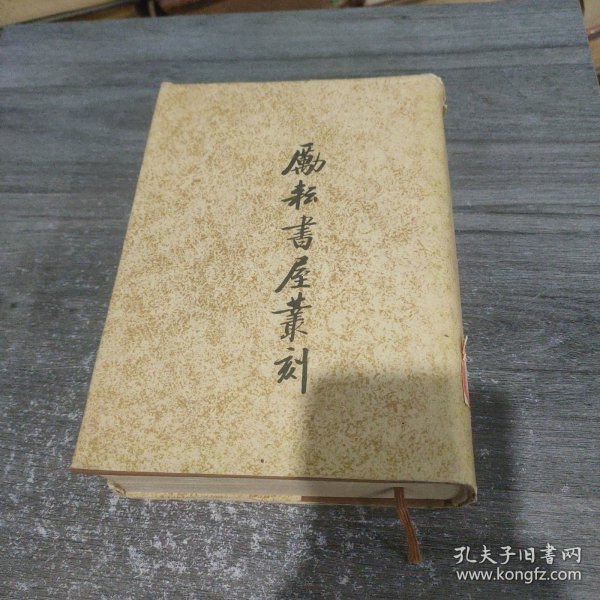 勵耘書屋叢刻
孔夫子旧書网
www.kongfz.com